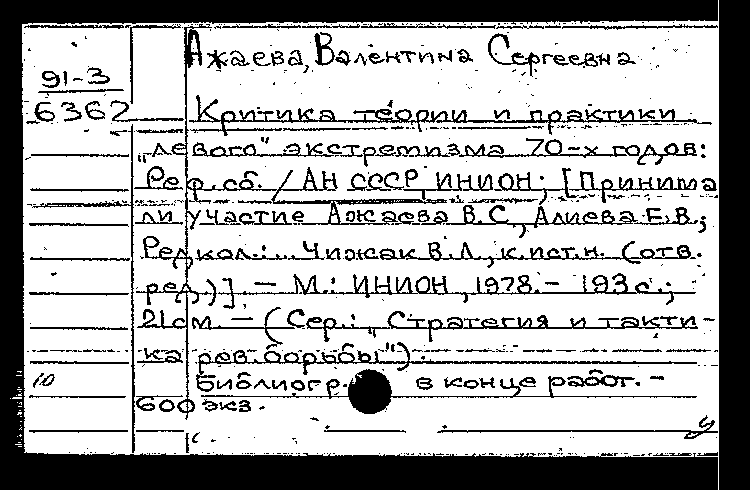 Ажаева, Валентина Сергеевна
91-3
6362
Критика теории и практики
„левого" экстремизма 70-х годов:
Реф. сб. / АН СССР, ИНИОН; [Принима
ли участие Ажаева В.С., Алиева Е.В.;
Редкол.: ... Чижак В.Л., к.ист.н. (отв.
ред.)]. — М.: ИНИОН, 1978. - 193 с.;
21 см. — (Сер.: „Стратегия и такти-
ка рев. борьбы").
10
Библиогр. в конце работ. -
600 экз.